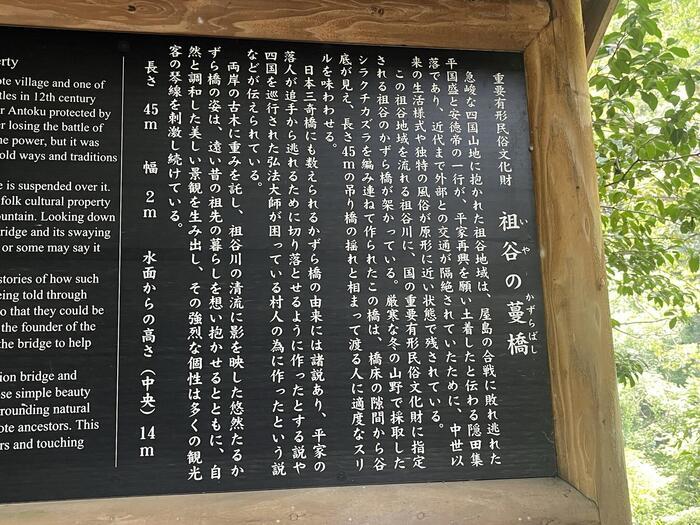 重要有形民俗文化財
祖谷の蔓橋
いや
かずらばし
急峻な四国山地に抱かれた祖谷地域は、屋島の合戦に敗れ逃れた
平国盛と安徳帝の一行が、平家再興を願い土着したと伝わる隠田集
落であり、近代まで外部との交通が隔絶されていたために、中世以
来の生活様式や独特の風俗が原形に近い状態で残されている。
この祖谷地域を流れる祖谷川に、国の重要有形民俗文化財に指定
される祖谷のかずら橋が架かっている。厳寒な冬の山野で採取した
シラクチカズラを編み連ねて作られたこの橋は、橋床の隙間から谷
底が見え、長さ45mの吊り橋の揺れと相まって渡る人に適度なスリ
ルを味わわせる。
日本三奇橋にも数えられるかずら橋の由来には諸説あり、平家の
落人が追手から逃れるために切り落とせるように作ったとする説や
四国を巡行された弘法大師が困っている村人の為に作ったという説
などが伝えられている。
両岸の古木に重みを託し、祖谷川の清流に影を映した悠然たるか
ずら橋の姿は、遠い昔の祖先の暮らしを想い抱かせるとともに、自
然と調和した美しい景観を生み出し、その強烈な個性は多くの観光
客の琴線を刺激し続けている。
長さ 45m 幅 2m 水面からの高さ(中央)14m
erty
ote village and one of
tles in 12th century
r Antoku protected by
r losing the battle of
he power, but it was
old ways and traditions
e is suspended over it.
folk cultural property
untain. Looking down
ridge and its swaying
or some may say it
stories of how such
eing told through
o that they could be
the founder of the
the bridge to help
ion bridge and
se simple beauty
rounding natural
ote ancestors. This
rs and touching